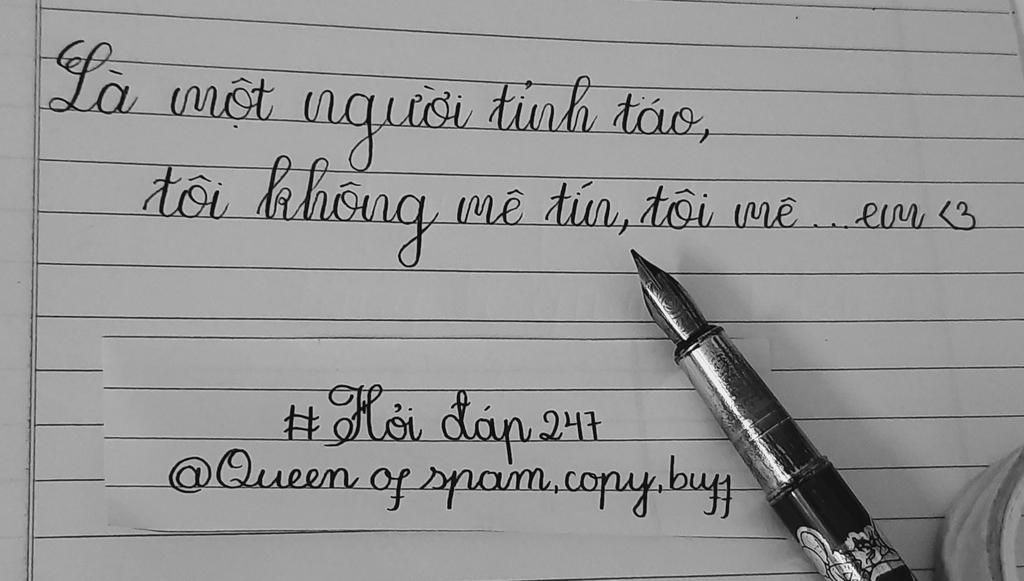 Là một người tỉnh táo,
tôi không mê tín, tôi mê ... em <3
#Hỏi đáp 247
@Queen of spam, copy, buff